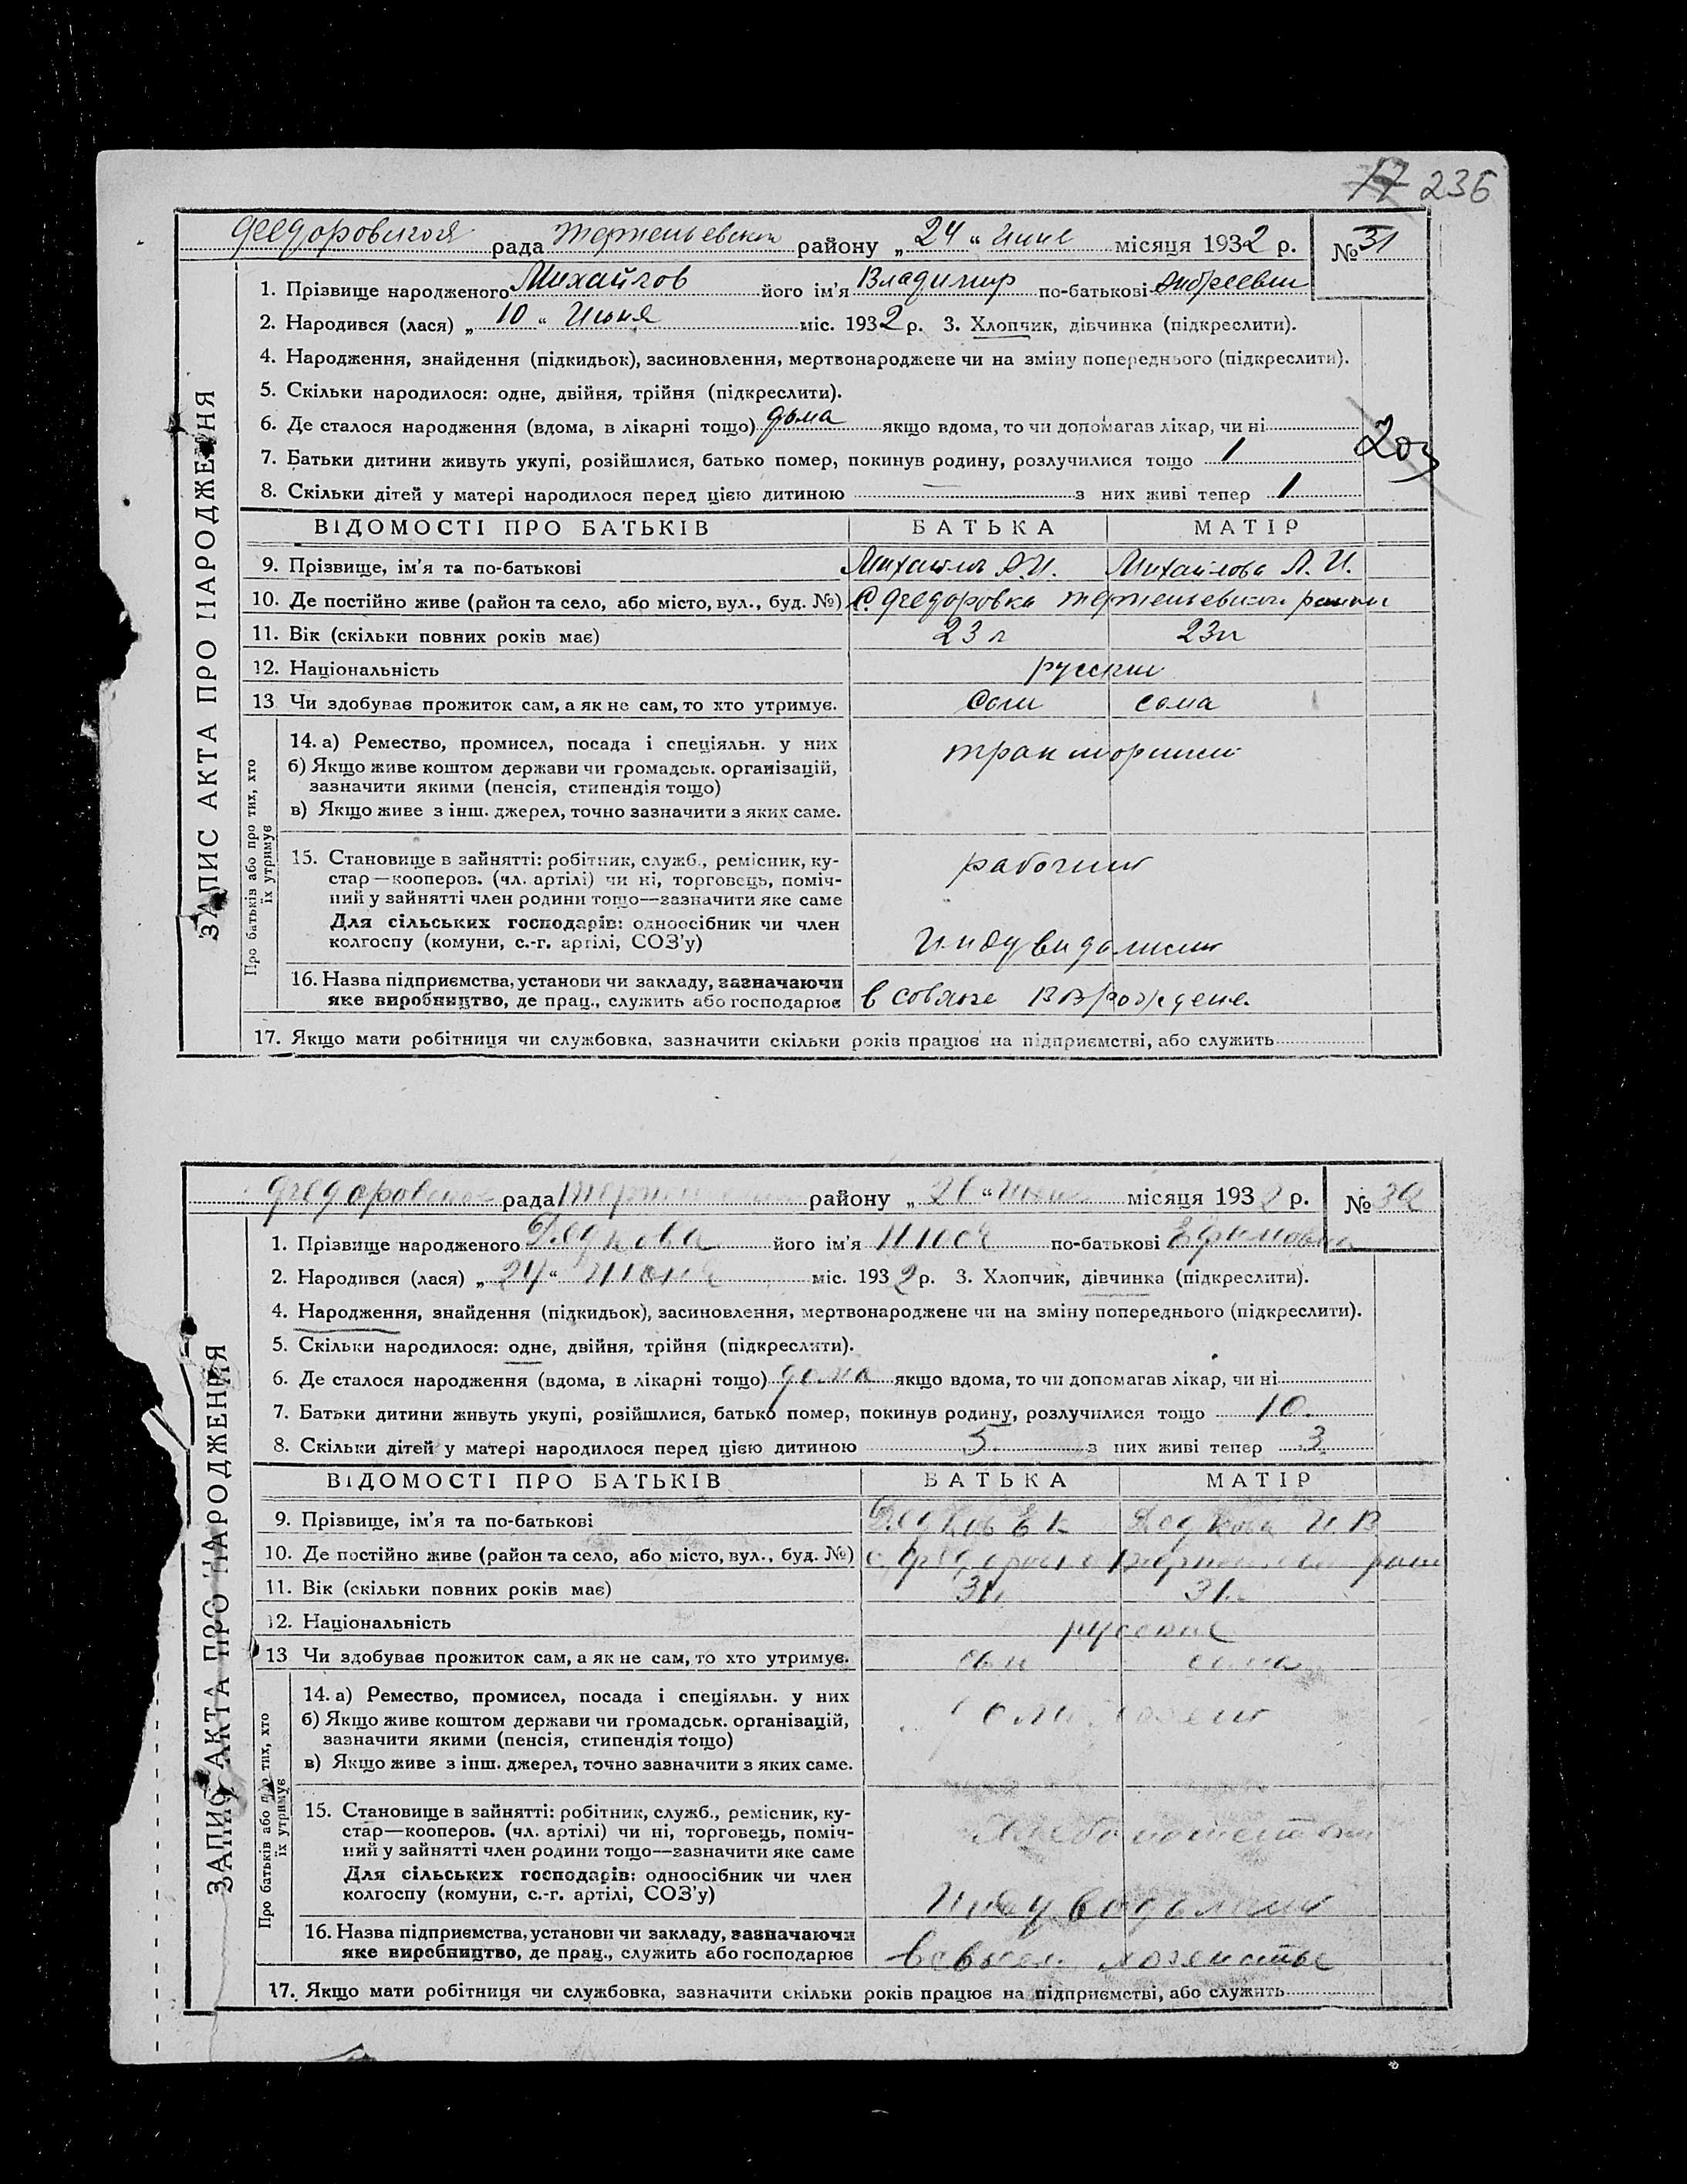 17 236
Федоровская рада района „24“ июне місяця 1932 р. № 31
1. Прізвище народженого Михайлов його ім'я Владимир по-батькові Андреевич
2. Народився (лася) „10“ Июня міс. 1932 р. 3. Хлопчик, дівчинка (підкреслити).
4. Народження, знайдення (підкидьок), засиновлення, мертвонароджене чи на зміну попереднього (підкреслити).
5. Скільки народилося: одне, двійня, трійня (підкреслити).
6. Де сталося народження (вдома, в лікарні тощо) дома якщо вдома, то чи допомагав лікар, чи ні
7. Батьки дитини живуть укупі, розійшлися, батько помер, покинув родину, розлучилися тощо 1
8. Скільки дітей у матері народилося перед цією дитиною — з них живі тепер 1
ЗАПИС АКТА ПРО НАРОДЖЕННЯ
ВІДОМОСТІ ПРО БАТЬКІВ БАТЬКА МАТІР
9. Прізвище, ім'я та по-батькові Михайлов А.И. Михайлова А. И.
10. Де постійно живе (район та село, або місто, вул., буд. №) С. Федоровка
11. Вік (скільки повних років має) 23 л 23л
12. Національність русские
13 Чи здобуває прожиток сам, а як не сам, то хто утримує. сам сама
Про батьків або про тих, хто їх утримує
14. а) Ремество, промисел, посада і спеціяльн. у них тракторист
б) Якщо живе коштом держави чи громадськ. організацій,
зазначити якими (пенсія, стипендія тощо)
в) Якщо живе з інш. джерел, точно зазначити з яких саме.
15. Становище в зайнятті: робітник, служб., ремісник, ку-
стар—кооперов. (чл. артілі) чи ні, торговець, поміч-
ний у зайнятті член родини тощо—зазначити яке саме рабочий
Для сільських господарів: одноосібник чи член
колгоспу (комуни, с.-г. артілі, СОЗ'у)
16. Назва підприємства, установи чи закладу, зазначаючи
яке виробництво, де прац., служить або господарює в
17. Якщо мати робітниця чи службовка, зазначити скільки років працює на підприємстві, або служить
рада району місяця 1932 р. № 32
1. Прізвище народженого Дедкова його ім'я Люся по-батькові Ефимовна
2. Народився (лася) „24“ Июня міс. 1932 р. 3. Хлопчик, дівчинка (підкреслити).
4. Народження, знайдення (підкидьок), засиновлення, мертвонароджене чи на зміну попереднього (підкреслити).
5. Скільки народилося: одне, двійня, трійня (підкреслити).
6. Де сталося народження (вдома, в лікарні тощо) дома якщо вдома, то чи допомагав лікар, чи ні
7. Батьки дитини живуть укупі, розійшлися, батько помер, покинув родину, розлучилися тощо 10
8. Скільки дітей у матері народилося перед цією дитиною 5 з них живі тепер 3
ЗАПИС АКТА ПРО НАРОДЖЕННЯ
ВІДОМОСТІ ПРО БАТЬКІВ БАТЬКА МАТІР
9. Прізвище, ім'я та по-батькові Дедков Е К Дедкова И. В
10. Де постійно живе (район та село, або місто, вул., буд. №)
11. Вік (скільки повних років має) 31 31
12. Національність русские
13 Чи здобуває прожиток сам, а як не сам, то хто утримує. сам сама
Про батьків або про тих, хто їх утримує
14. а) Ремество, промисел, посада і спеціяльн. у них
б) Якщо живе коштом держави чи громадськ. організацій,
зазначити якими (пенсія, стипендія тощо)
в) Якщо живе з інш. джерел, точно зазначити з яких саме.
15. Становище в зайнятті: робітник, служб., ремісник, ку-
стар—кооперов. (чл. артілі) чи ні, торговець, поміч-
ний у зайнятті член родини тощо—зазначити яке саме
Для сільських господарів: одноосібник чи член
колгоспу (комуни, с.-г. артілі, СОЗ'у)
16. Назва підприємства, установи чи закладу, зазначаючи
яке виробництво, де прац., служить або господарює
17. Якщо мати робітниця чи службовка, зазначити скільки років працює на підприємстві, або служить